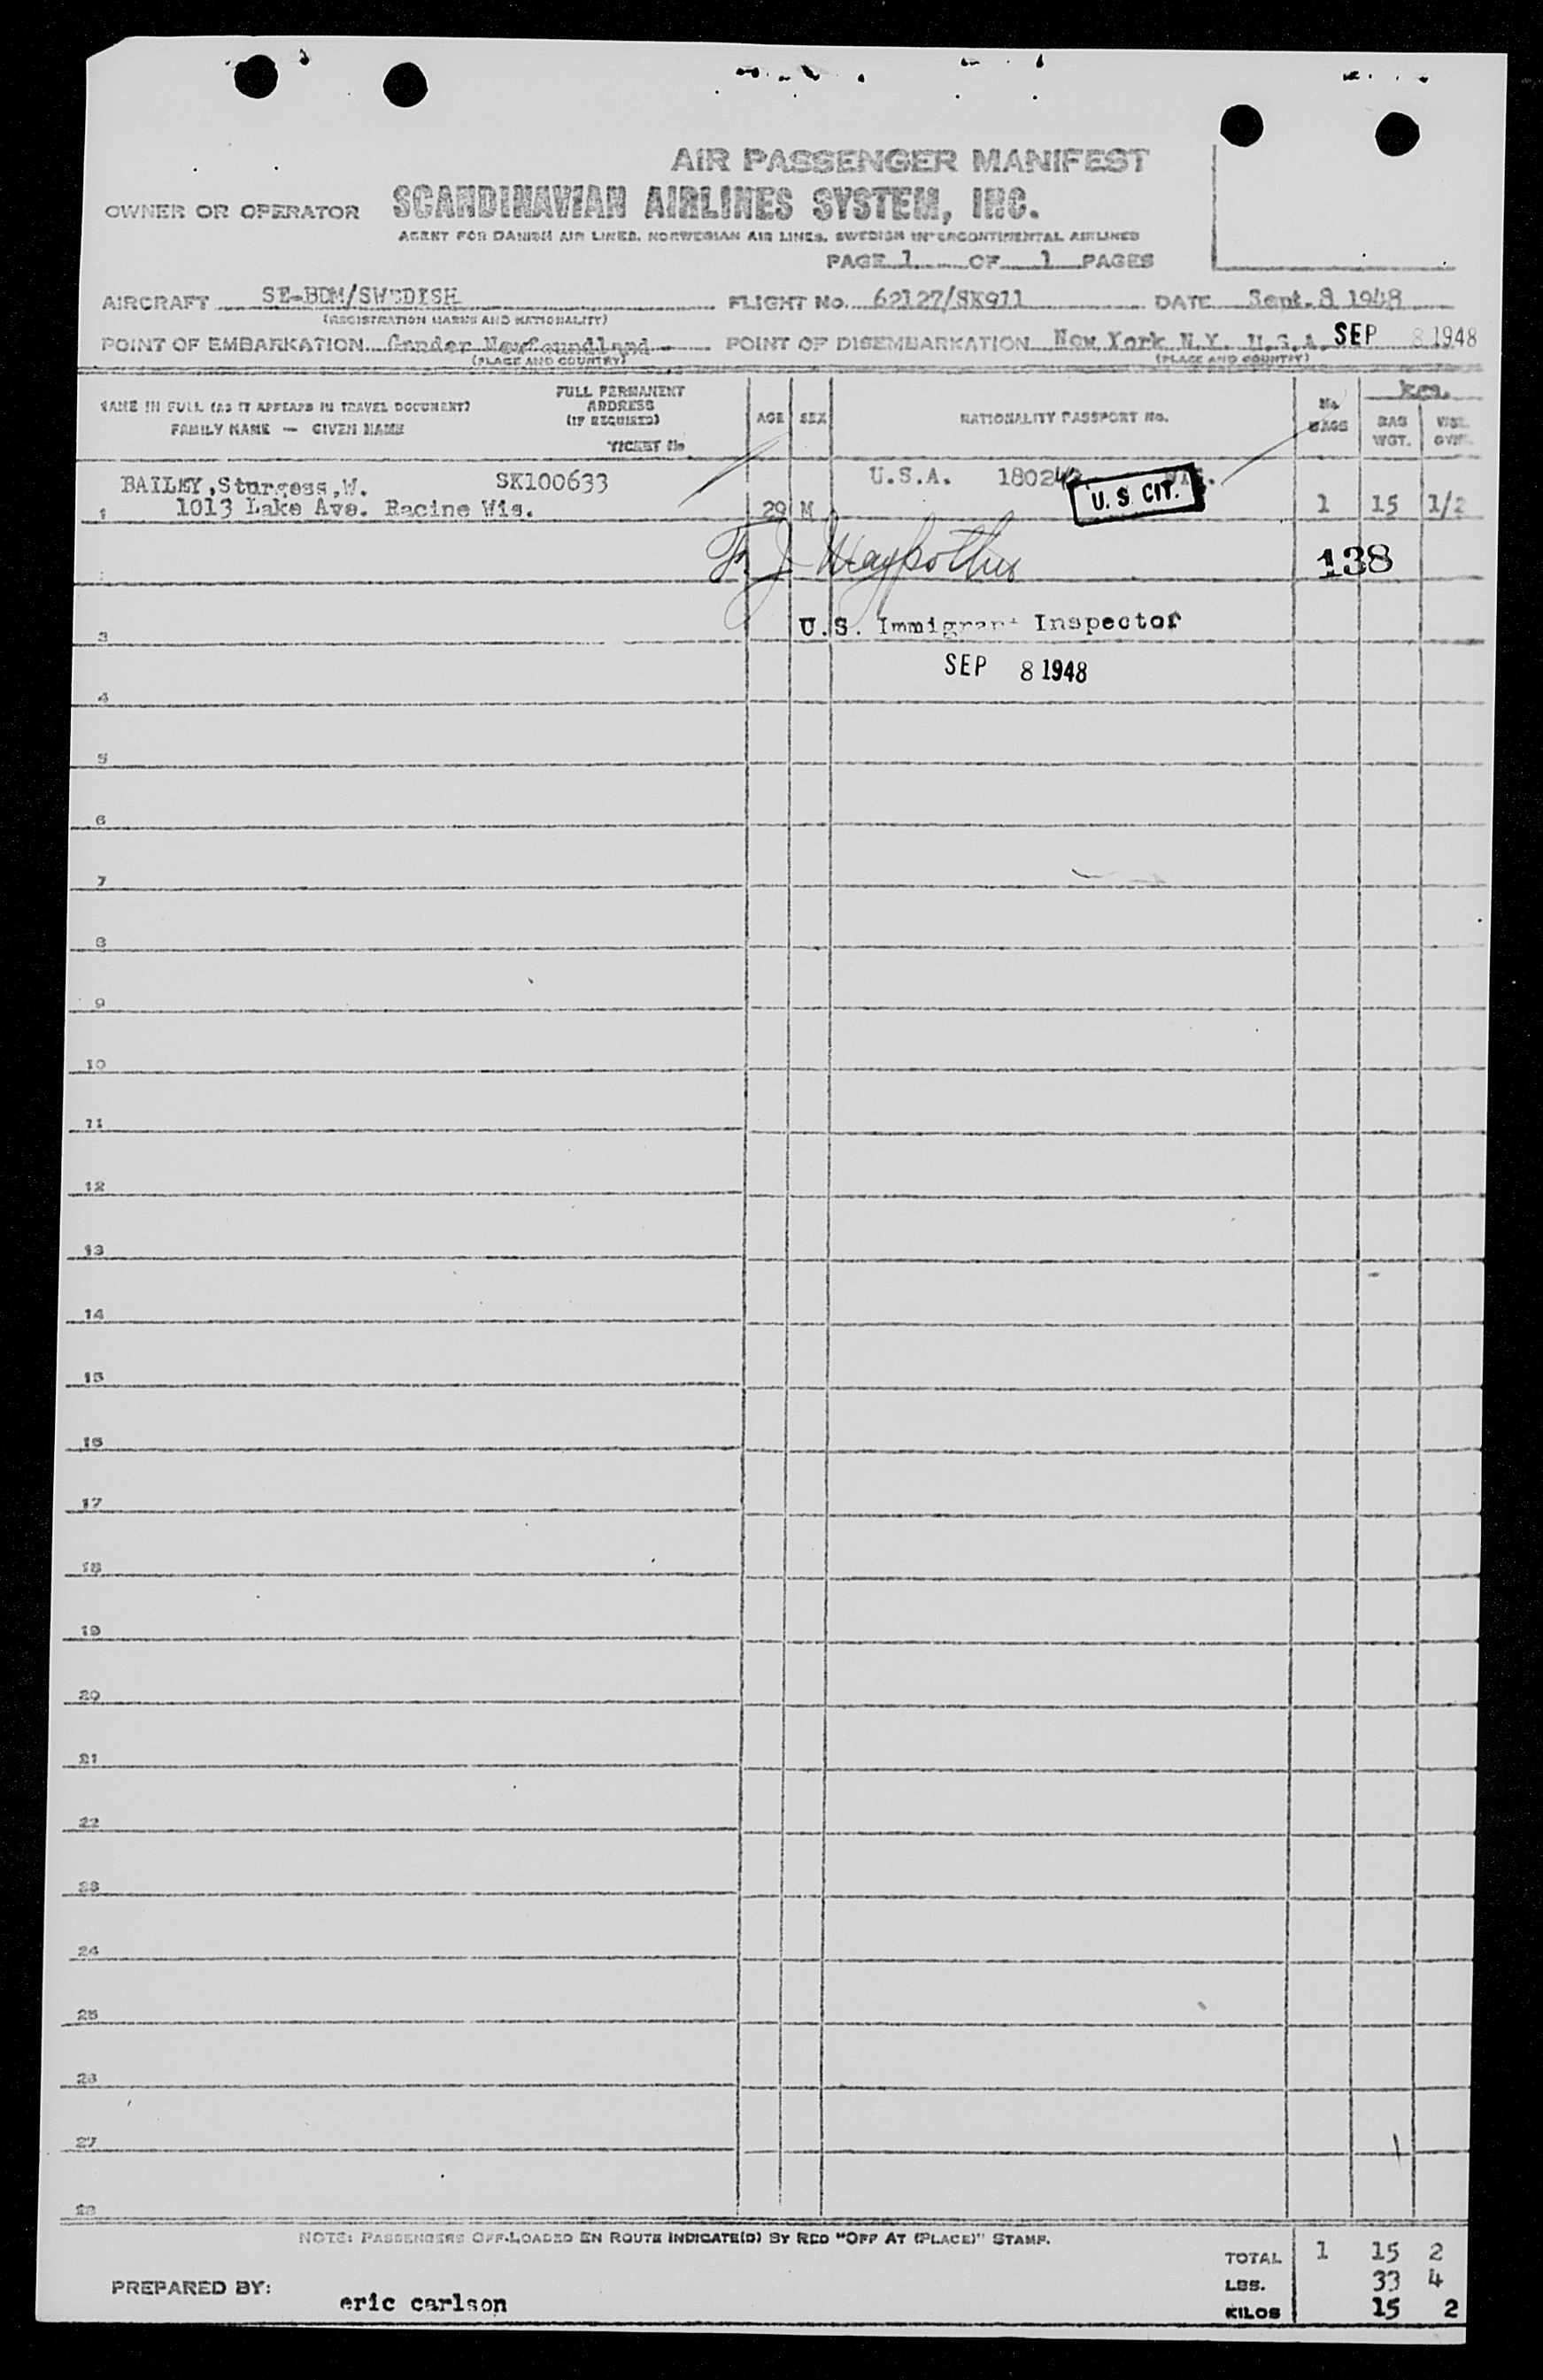 AIR PASSENGER MANIFEST
OWNER OR OPERATOR SCANDINAVIAN AIRLINES SYSTEM, INC.
AGENT FOR DANISH AIR LINES, NORWEGIAN AIR LINES, SWEDISH INTERCONTINENTAL AIRLINES
PAGE 1 OF 1 PAGES
AIRCRAFT SE-BDM/SWEDISH FLIGHT No. 62127/SK911 DATE Sept. 8 1948
(REGISTRATION MARKS AND NATIONALITY)
POINT OF EMBARKATION Gander Newfoundland POINT OF DISEMBARKATION New York N.Y. U.S.A. SEP 8 1948
(PLACE AND COUNTRY) (PLACE AND COUNTRY)
NAME IN FULL (AS IT APPEARS IN TRAVEL DOCUMENT)
FAMILY NAME — GIVEN NAME
FULL PERMANENT
ADDRESS
(IF REQUIRED)
TICKET No
AGE SEX NATIONALITY PASSPORT No. No. BAGS Kgs. BAG WGT.
BAILEY,Sturgess,W. SK100633 U.S.A. U. S. CIT.
1 1013 Lake Ave. Racine Wis. 29 M 1 15 1/2
F. J. 138
U.S. Immigrant Inspector
3
SEP 8 1948
4
5
6
7
8
9
10
11
12
13
14
15
16
17
18
19
20
21
22
23
24
25
26
27
28
NOTE: PASSENGERS OFF-LOADED EN ROUTE INDICATE(D) BY RED "OFF AT (PLACE)" STAMP.
TOTAL 1 15 2
LBS. 33 4
PREPARED BY: eric carlson
KILOS 15 2